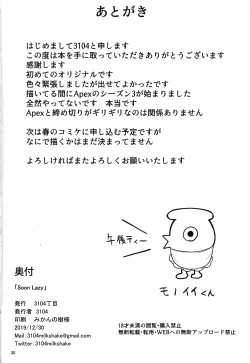 あとがき
はじめまして3104と申します
この度は本を手に取っていただきありがとうございます
感謝します
初めてのオリジナルです
色々緊張しましたが出せてよかったです
描いてる間にApexのシーズン3が始まりました
全然やってないです 本当です
Apexと締め切りがギリギリなのは関係ありません
次は春のコミケに申し込む予定ですが
なにで描くかはまだ決まってません
よろしければまたよろしくお願いいたします
午後ティー
モノイイくん
奥付
「Soon Lazy」
発行 3104丁目
発行者 3104
印刷 みかんの樹様
2019/12/30
Mail: 3104milkshake@gmail.com
Twitter: 3104milkshake
18才未満の閲覧・購入禁止
無断転載・転用・WEBへの無断アップロード禁止
30